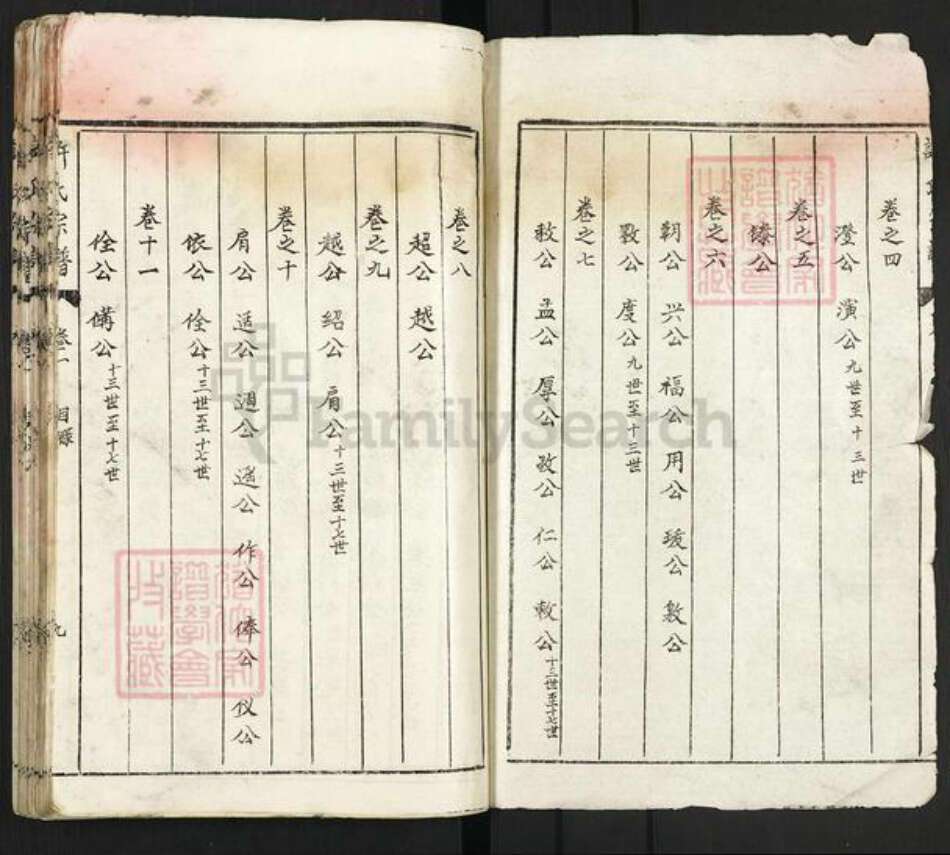 卷之四
澄公 演公 九世至十三世
卷之五
臻公
卷之六
朝公 兴公 福公 用公 瑗公 敷公
斅公 度公 九世至十三世
卷之七
敊公 孟公 厚公 孜公 仁公 敕公 十三世至十七世
卷之八
超公 越公
卷之九
越公 绍公 肩公 十三世至十七世
卷之十
肩公 适公 週公 遥公 作公 俸公 仪公
依公 佺公 十三世至十七世
卷十一
佺公 備公 十三世至十七世
許氏宗譜 卷二 目録 九
譜學會 收藏
FamilySearch